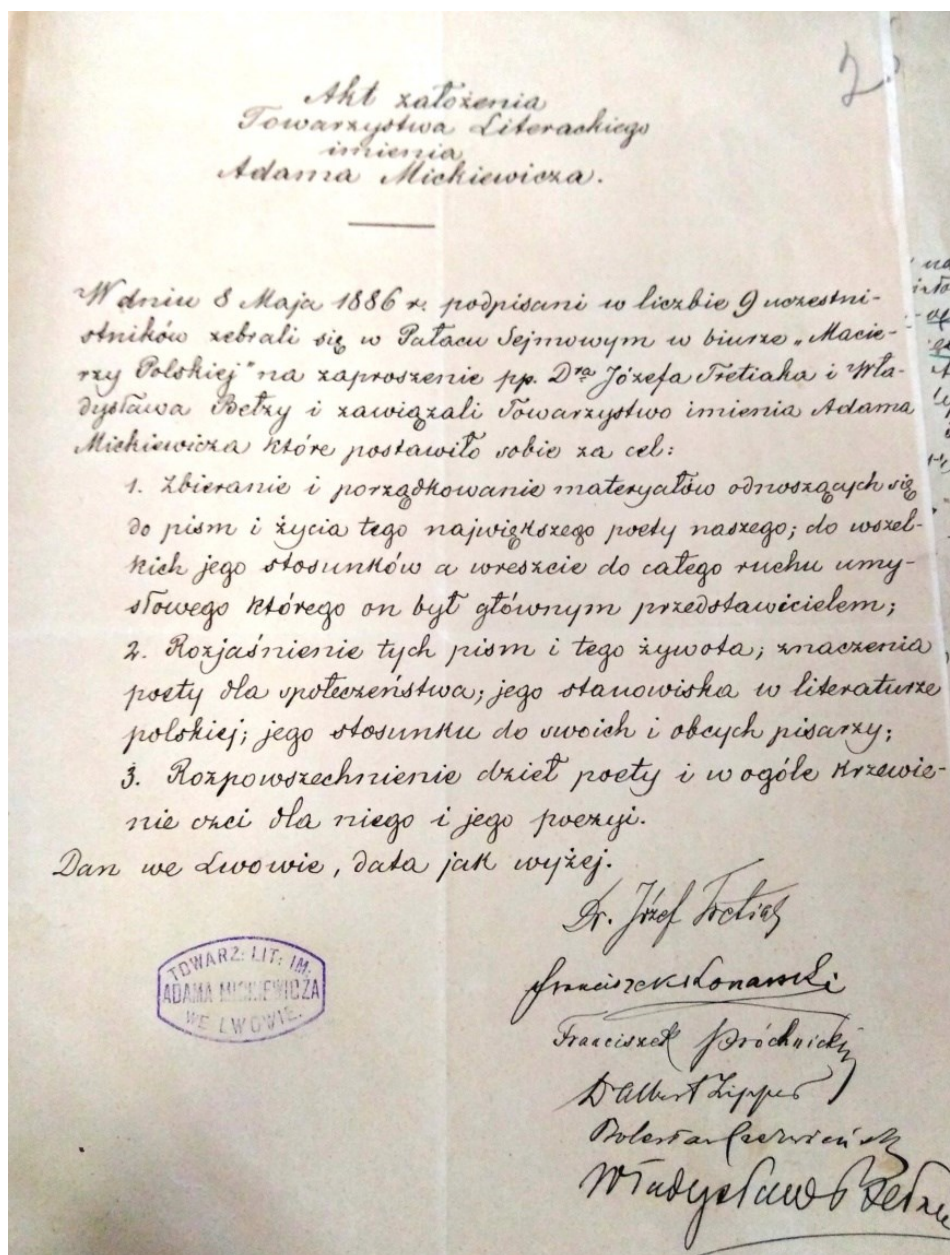 2.
Akt założenia
Towarzystwa Literackiego
imienia
Adama Mickiewicza.
W dniu 8 Maja 1886 r. podpisani w liczbie 9 uczestni-
stników zebrali się w Pałacu Sejmowym w biurze „Macie-
rzy Polskiej" na zaproszenie pp. Dra Józefa Tretiaka i Wła-
dysława Bełzy i zawiązali Towarzystwo imienia Adama
Mickiewicza które postawiło sobie za cel:
1. Zbieranie i porządkowanie materyałów odnoszących się
do pism i życia tego największego poety naszego; do wszel-
kich jego stosunków a wreszcie do całego ruchu umy-
słowego którego on był głównym przedstawicielem;
2. Rozjaśnienie tych pism i tego żywota; znaczenia
poety dla społeczeństwa; jego stanowiska w literaturze
polskiej; jego stosunku do swoich i obcych pisarzy;
3. Rozpowszechnienie dzieł poety i w ogóle krzewie-
nie czci dla niego i jego poezyi.
Dan we Lwowie, data jak wyżej.
Dr. Józef Tretiak
Franciszek Konarski
Franciszek Próchnicki
Dr Albert Zipper
Bolesław Czerwieński
Władysław Bełza
TOWARZ: LIT: IM:
ADAMA MICKIEWICZA
WE LWOWIE.